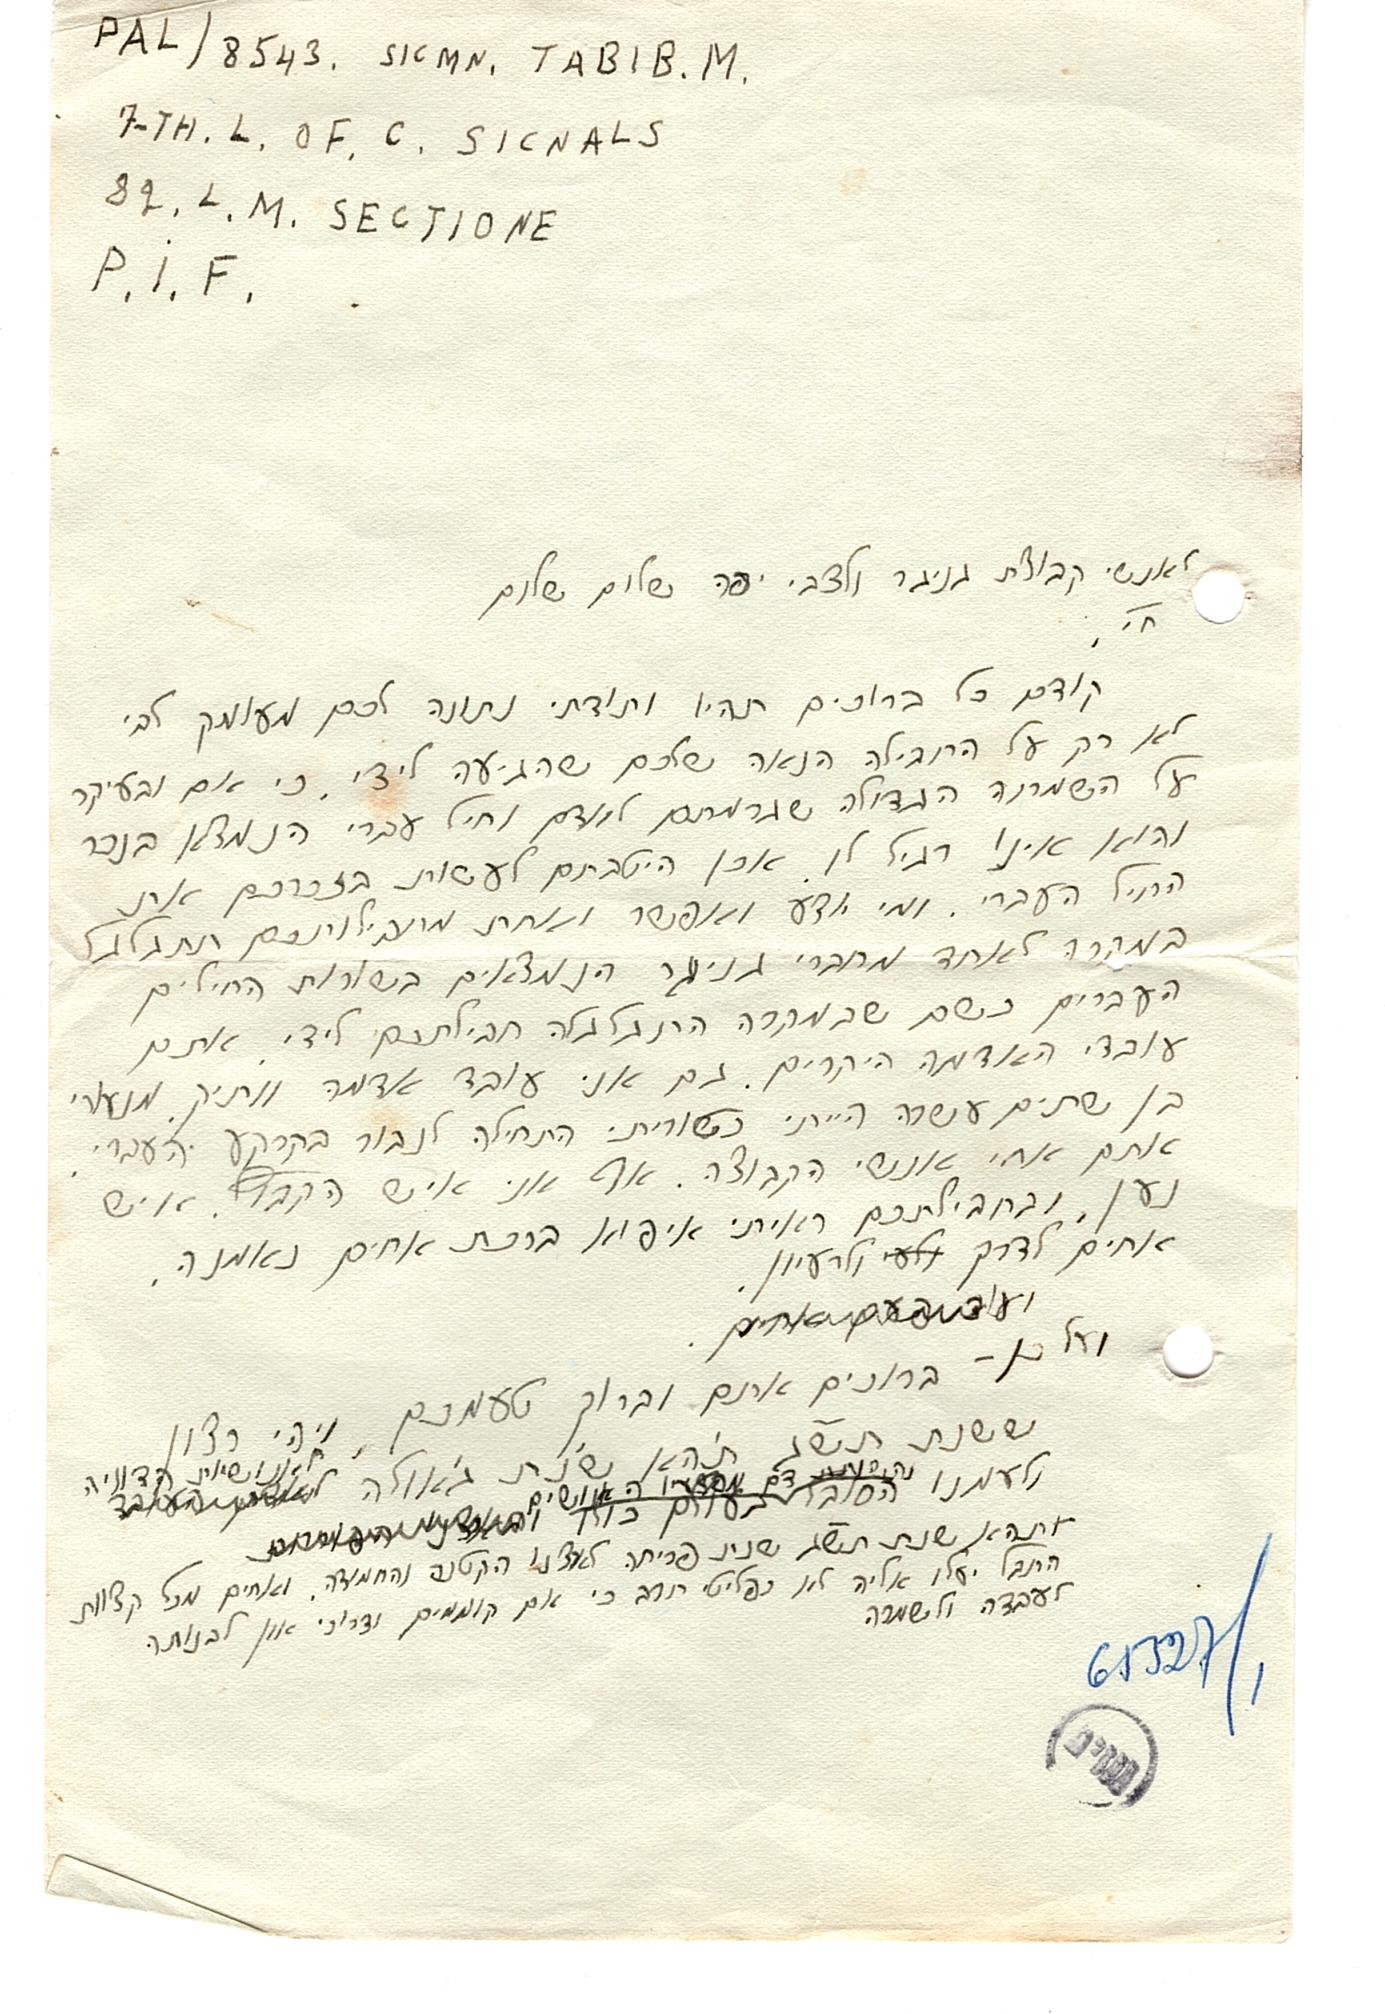 PAL/8543. SIGMN. TABIB. M.
7-TH. L. OF. C. SIGNALS
82. L. M. SECTIONE
P. I. F.
לאנשי קבוצת גניגר ולצבי יפה שלום שלום
ח״י,
קודם כל ברוכים תהיו ותודתי נתונה לכם מעומק לבי
לא רק על החבילה הנאה שלכם שהגיעה לידי, כי אם ובעיקר
על השמחה הגדולה שגרמתם לאדם וחיל עברי הנמצא בנכר
והוא אינו רגיל לו. אכן היטבתם לעשות בזכרכם את
החיל העברי. ומי יודע ואפשר ואחת מחבילותיכם תתגלגל
במקרה לאחד מחברי גניגר הנמצאים בשורות החילים
העברים כשם שבמקרה התגלגלה חבילתכם לידי. אתם
עובדי האדמה היקרים. גם אני עובד אדמה וותיק. מנעורי
בן שתים עשרה הייתי כשוריתי התחילה לנבור בקרקע העברי.
אתם אחי אנשי הקבוצה. אף אני איש הקבוץ. איש
נען, ובחבילתכם ראיתי איפוא ברכת אחים נאמנה.
אחים לדרך ולרעיון.
ועל כן - ברוכים אתם וברוך טעמכם, ויהי רצון
ששנת תש״ג תהא שנת גאולה לאנושיות הדוויה
ולעמנו הסובל בעולם כולו
ותהא שנת תש״ג שנת פריחה לארצנו הקטנה והחמודה. ואחים מכל קצוות
התבל יעלו אליה לא כפליטי חרב כי אם קוממים ודרוכי און לבנותה
לעבדה ולשמרה